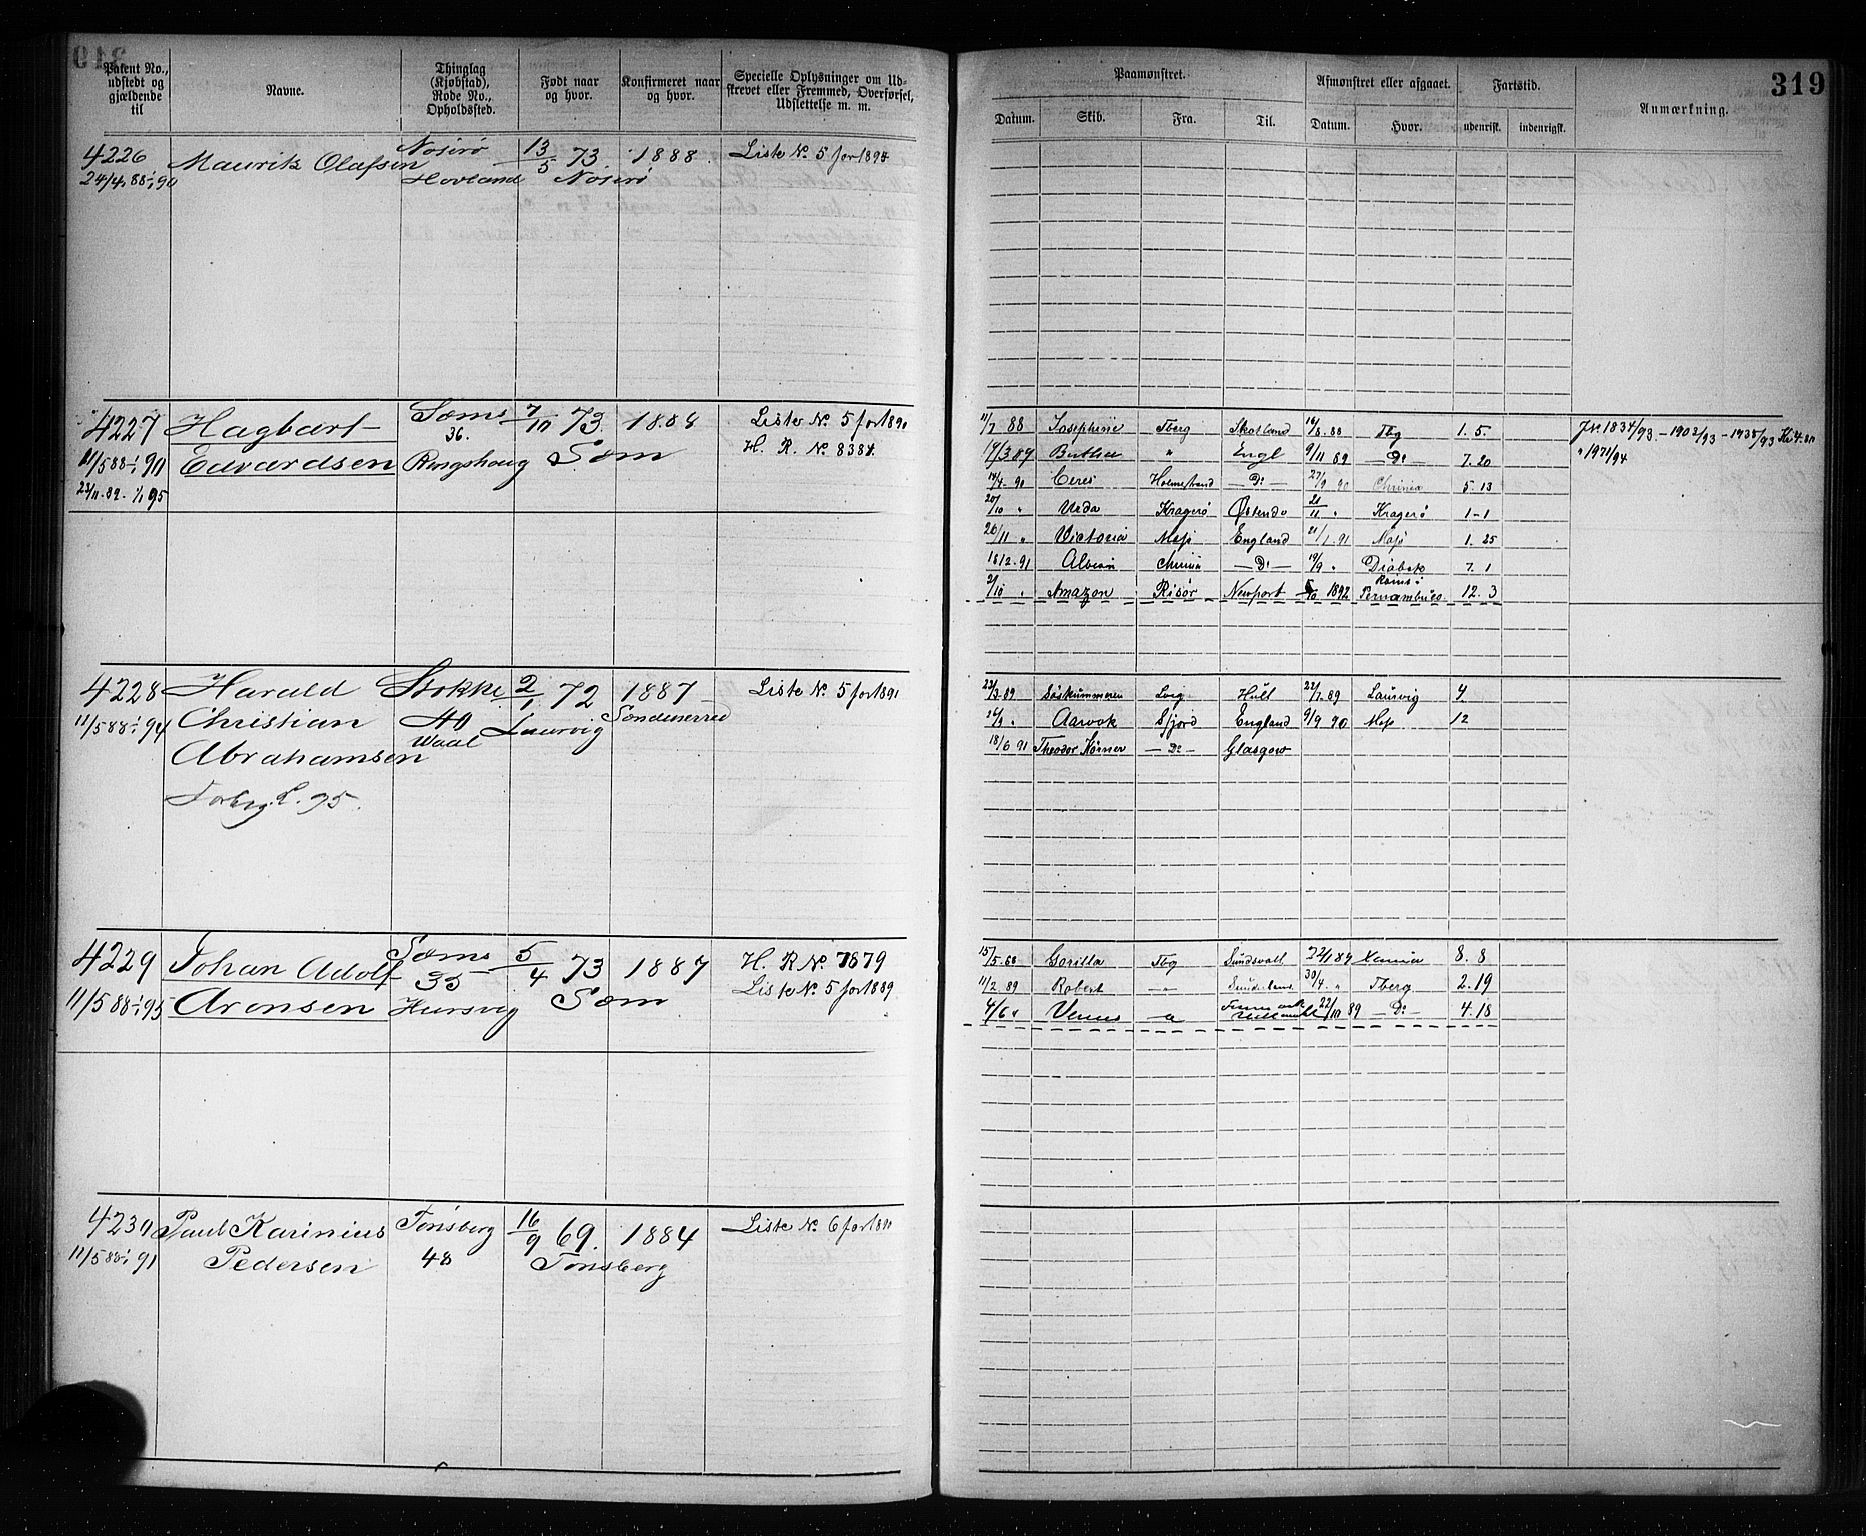 Patent No., udstedt og gjældende til
Navne.
Thinglag (Kjøbstad), Rode No., Opholdssted.
Født naar og hvor.
Konfirmeret naar og hvor.
Specielle Oplysninger om Udskrevet eller Fremmed, Overførsel, Udslettelse m. m.
Paamønstret.
Afmønstret eller afgaaet.
Fartstid.
Anmærkning.
319
Datum. Skib. Fra. Til. Datum. Hvor. udenrigst. indenrigst.
4226 Mauritz Olafsen Nøterø 13/5 73. 1888. Liste No. 5 for 1894
24/4 88-1/1 90 Hovland Nøterø
4227 Hagbart Sæms 7/10 73. 1888 Liste No. 5 for 1890
36. H. R. No. 8384
11/5 88-1/1 90 Edvardsen Ringshoug Sem
23/11-89-1/1 95
11/7 88 Josephine Tberg Skotland 16/8.88 Tbg 1. 5.
Jr. 1834/93-1902/93-1935/93
17/3 89 Bertha " Engl 9/11 89 - Do - 7. 20
" 1971/94
14/4. 90 Ceres Holmestrand - Do - 27/9 90 Chrinia 5. 13
20/10 " Urda Kragerø Ostende 21/11 " Kragerø 1-1
26/11 " Victoria Moss England 21/1.91 Moss 1. 25
18/2-91 Albion Chrinia - Do - 19/9 " Drøbak 7. 1
2/10 " Amazon Risør Newport 1892 Pernambuco. 12. 3
4228 Harald Stokke 2/1 72 1887 Liste No. 5 for 1891
11/5 88-1/1 94 Christian 40 Laurvig Sandeherred
Waal
Abrahamsen
Forbig. L. 95.
23/3-89 Lvig Hull 22/7.89 Laurvig 4.
16/9 " Aarvok Sfjord England 9/9 90 Moss 12
18/6 91 Theodor Körner - Do - Glasgow
4229 Johan Adolf Sæms 5/4 73 1887 H. R No. 7679
35 Liste No. 5 for 1889
11/5 88-1/1 95 Aronsen Husvig Sem
15/5.88 Gorilla Tbg Sundsvall 22/1 89 Xania 8. 8
11/2 89 Robert - " - Sunderland 30/4. " Tberg 2. 19
4/6 " Venus 22/10 89 - Do - 4. 18
4230 Paul Karinius Tønsberg 16/9 69. 1884 Liste No. 6 for 1891
11/5 88-1/1 91 Pedersen 48 Tønsberg